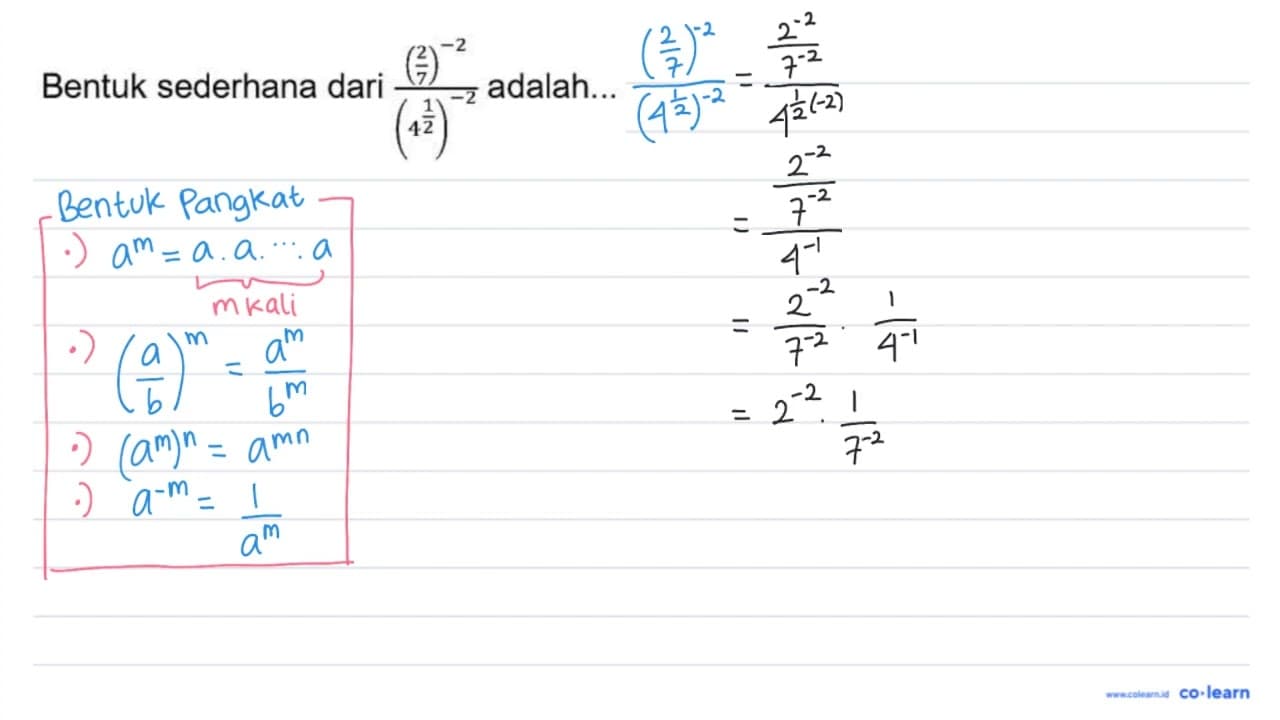 Bentuk sederhana dari \frac{(\frac{2}{7})^{-2}}{(4^{\frac{1}{2}})^{-2}} adalah...
\frac{(\frac{2}{7})^{-2}}{(4^{\frac{1}{2}})^{-2}} = \frac{\frac{2^{-2}}{7^{-2}}}{4^{\frac{1}{2}(-2)}}
= \frac{\frac{2^{-2}}{7^{-2}}}{4^{-1}}
= \frac{2^{-2}}{7^{-2}} . \frac{1}{4^{-1}}
= 2^{-2} . \frac{1}{7^{-2}}
Bentuk Pangkat
•) a^m = a . a . ... . a
m kali
•) (\frac{a}{b})^m = \frac{a^m}{b^m}
•) (a^m)^n = a^{mn}
•) a^{-m} = \frac{1}{a^m}
www.colearn.id co·learn